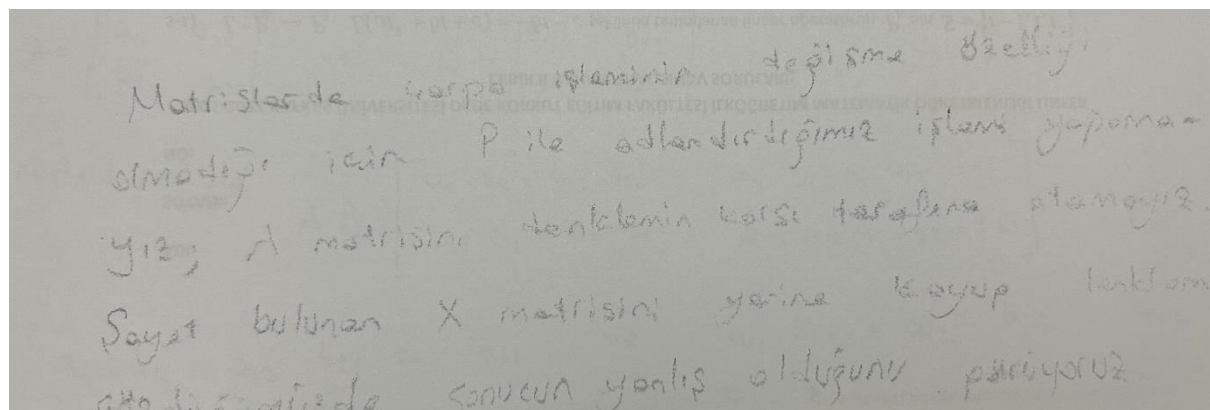 Matrislerde çarpa işleminin değişme özelliği
olmadığı için P ile adlandırdığımız işlemi yapama-
yız; A matrisini denklemin karşı tarafına atamayız.
Şayet bulunan X matrisini yerine koyup denklem
sonucun yanlış olduğunu görüyoruz